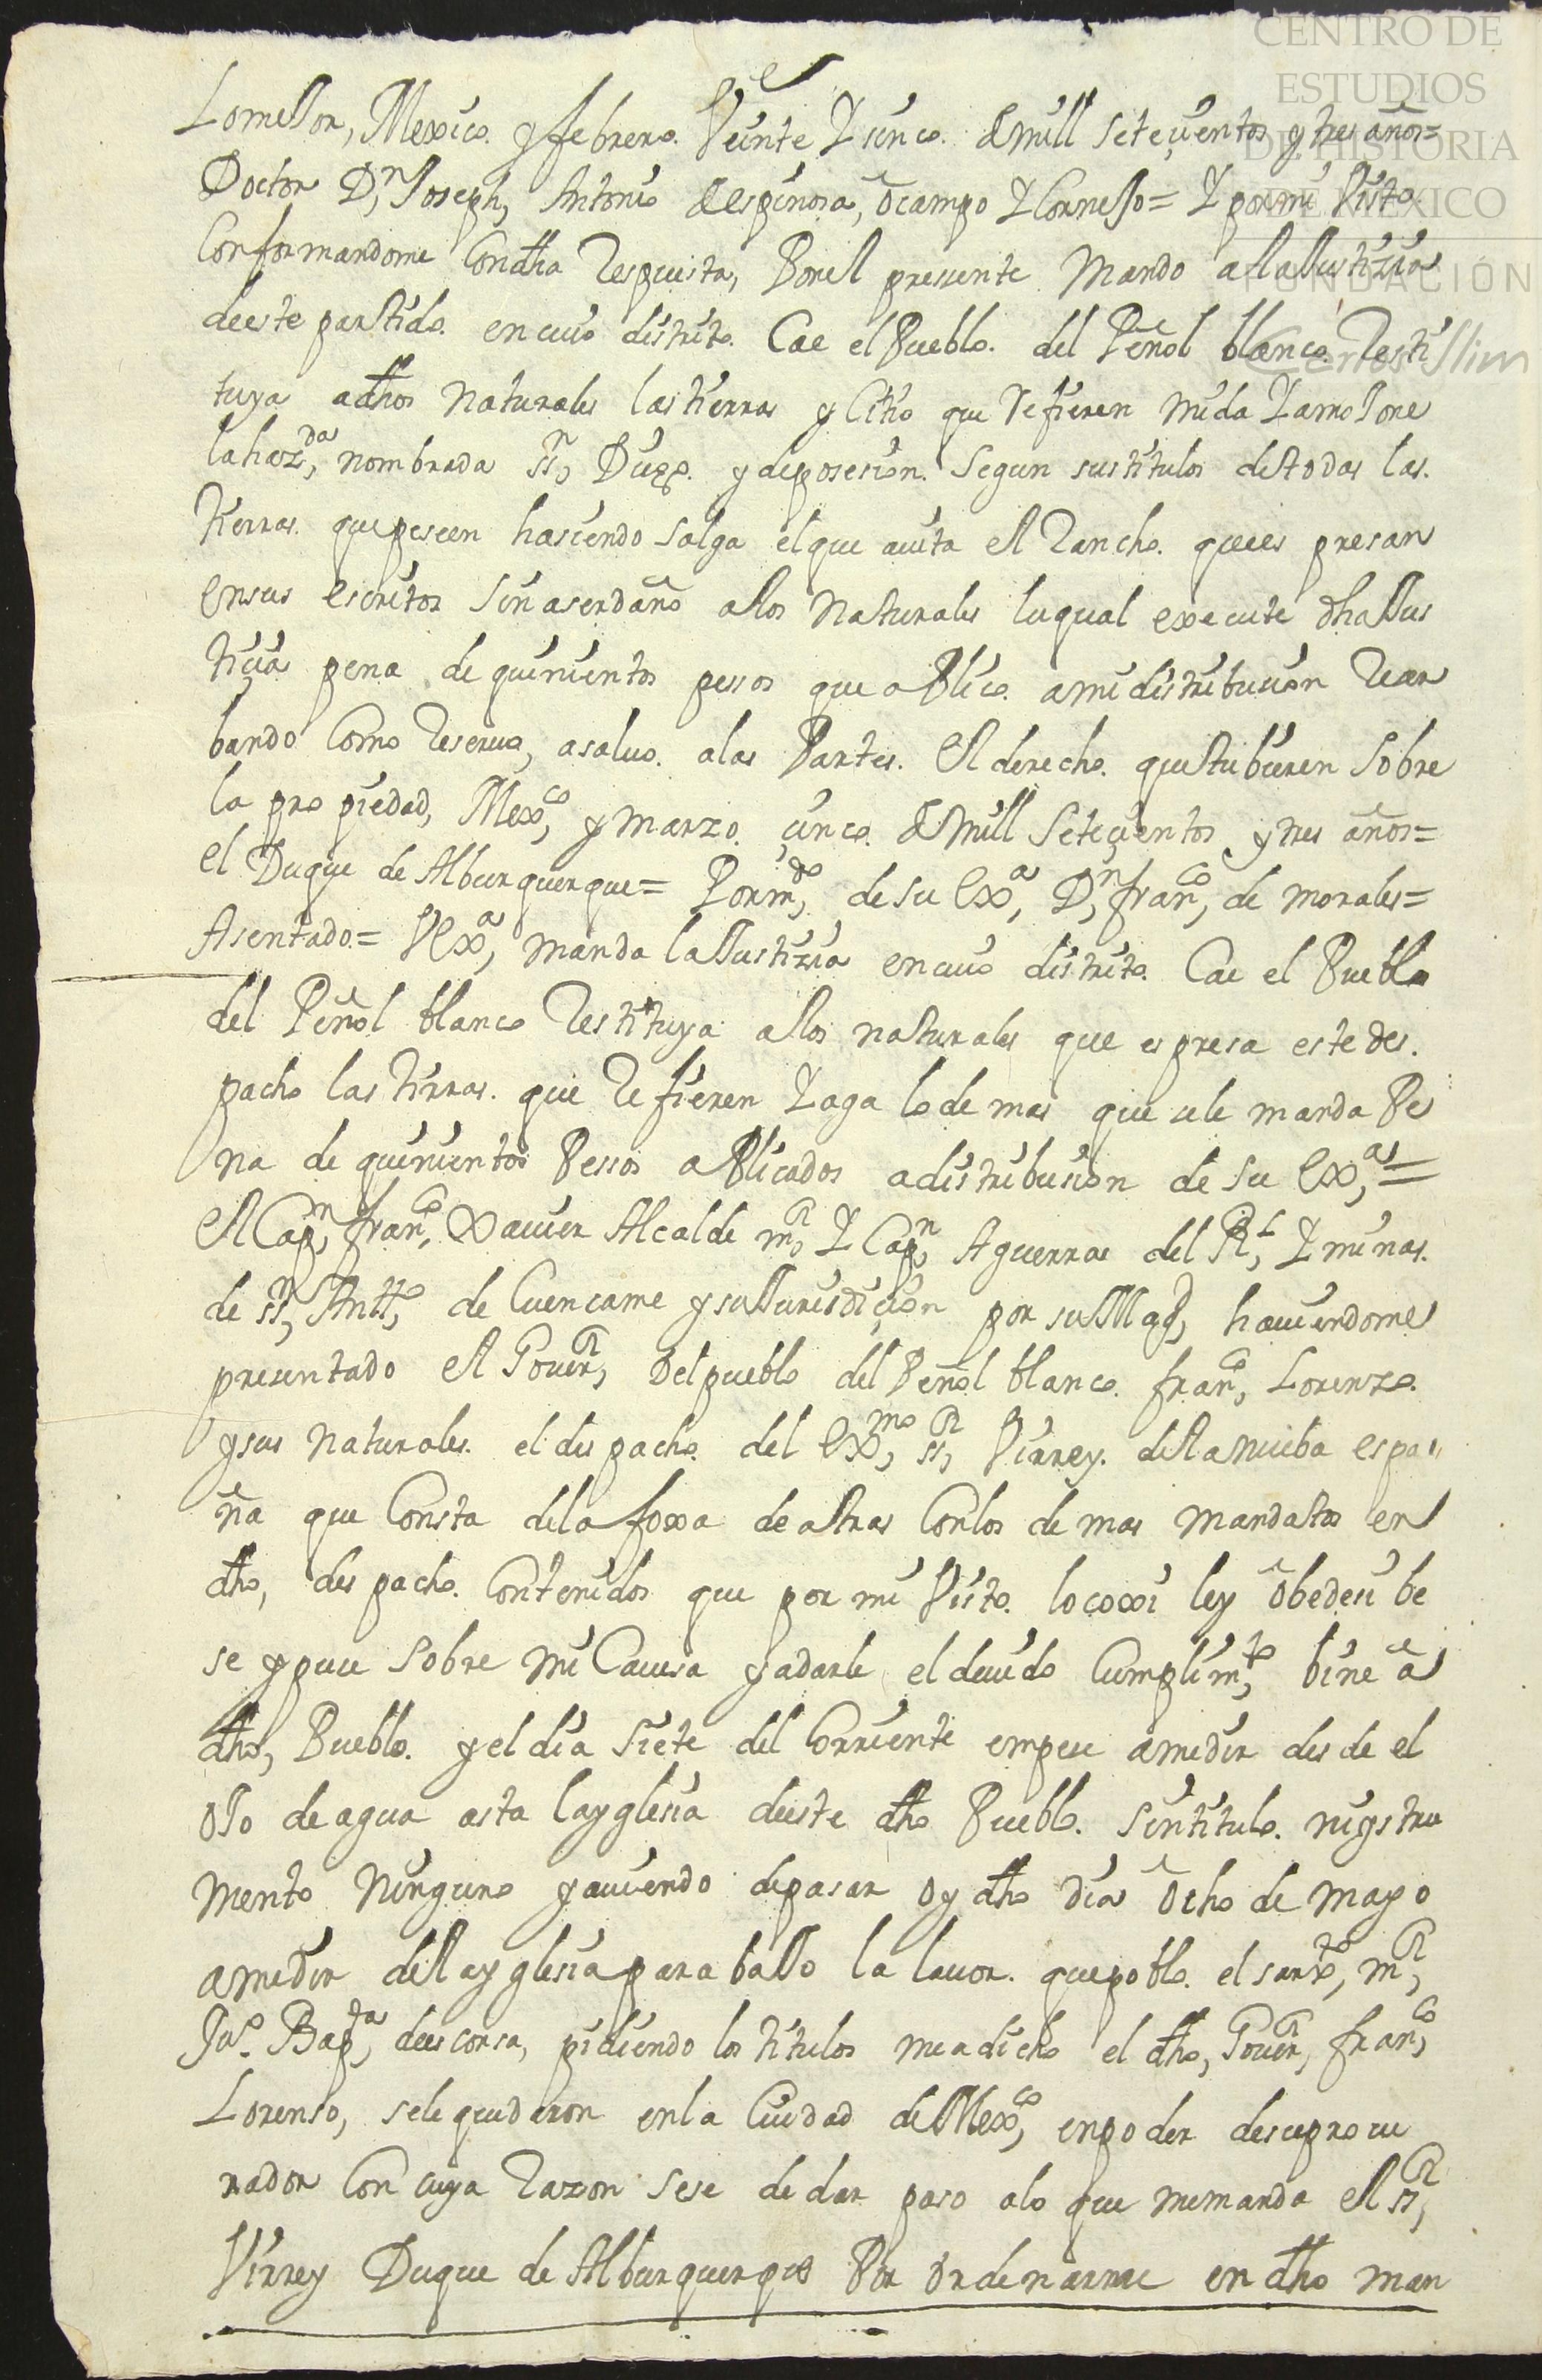 CENTRO DE
ESTUDIOS
DE HISTORIA
DE MEXICO
FUNDACIÓN
Carlos Slim
Lomejor, Mexico y febrero Veinte Y sinco de mill seteçientos y tres años=
Doctor Dn, Joseph, Antonio de espinosa, ocampo Y Cornejo= Y por mi Visto
Conformandome Con dha Respuesta, Por el presente Mando a la Justizia
de este partido en cuio distrito Cae el Pueblo del Peñol blanco Resti
tuya a dhos Naturales las tierras y Citio que Refieren mida Y amojone
la hazda, nombrada sn, Diego y de posesion Segun sus titulos de todas las
tierras que poseen hasiendo salga el que auita el Rancho que es presan
en sus escritos sin aser daño a los Naturales lu qual execute dha Jus
tiçia pena de quinientos pessos que aplico a mi distribusion Reser
bando Como Reseruo, a saluo a las Partes el derecho que tubieren sobre
la propiedad, Mexco, y marzo çinco de mill seteçientos y tres años=
el Duque de Alburquerque= Por mdo, de su Exa, Dn, franco, de morales=
Asentado= V Exa, manda la Justizia en cuio distrito Cae el Pueblo
del Peñol blanco Restituya a los naturales que espresa este des
pacho las tirras que Refieren Y aga lo de mas que se le manda Pe
na de quinientos Pessos aplicados a distribusion de su Exa,=
El Capn, franco, Xauier Alcalde mr, Y Capn, A guerra del Rl, Y minas
de sn, Antto, de Cuencame y su Jurisdiçion por su Magd, hauiendome
presentado el Gouerr, Del pueblo del Peñol blanco franco, Lorenzo
y sus naturales el des pacho del Exmo, sr, Virrey de la nueba espa
ña que Consta de la foxa de atras Con los de mas mandatos en
dho, des pacho Contenidos que por mi Visto lo coxi ley obedesi be
se y puse sobre mi Cauesa y a darle el deuido Cumplimto, bine a
dho, Pueblo y el dia siete del Corriente empese a medir des de el
ojo de agua asta la yglesia deeste dho Pueblo sin titulo ni ystru
mento ninguno y auiendo de pasar oy dho dia ocho de mayo
a medir de la yglesia para bajo la lauor que poblo el sarxto, mr,
Juo Bapta, de escorsa, pidiendo los titulos me a dicho el dho, Gouerr, franco,
Lorenso, se le quedaron en la Ciudad de Mexco, en poder de su procu
rador Con cuya Razon sese de dar paso a lo que me manda el sr,
Virrey Duque de Alburquerque Por ordenarme en dho man